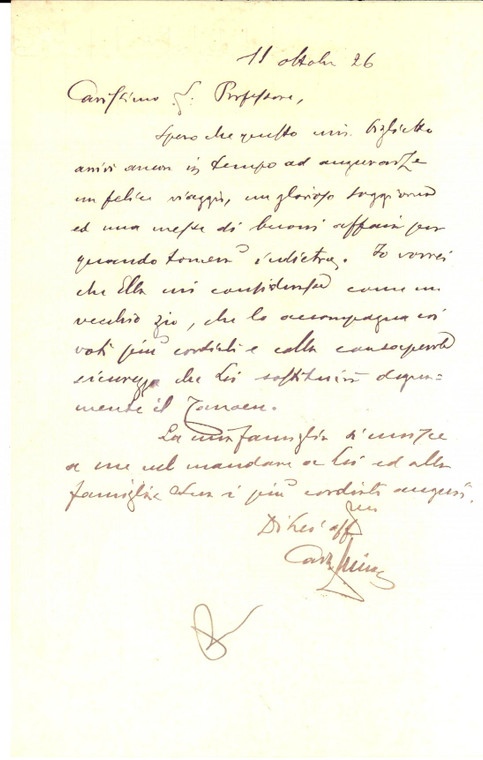 11 ottobre 26
Carissimo S. Professore,
Spero che questo mio biglietto
arrivi ancora in tempo ad augurarle
un felice viaggio, un glorioso soggiorno
ed una messe di buoni affari per
quando tornerà indietro. Io vorrei
che Ella mi considerasse come un
vecchio zio, che lo accompagna coi
voti più cordiali e colla consapevole
sicurezza che Lei sostituirà degna-
mente il
La mia famiglia si unisce
a me nel mandare a Lei ed alla
famiglia Sua i più cordiali auguri.
Di Lei aff